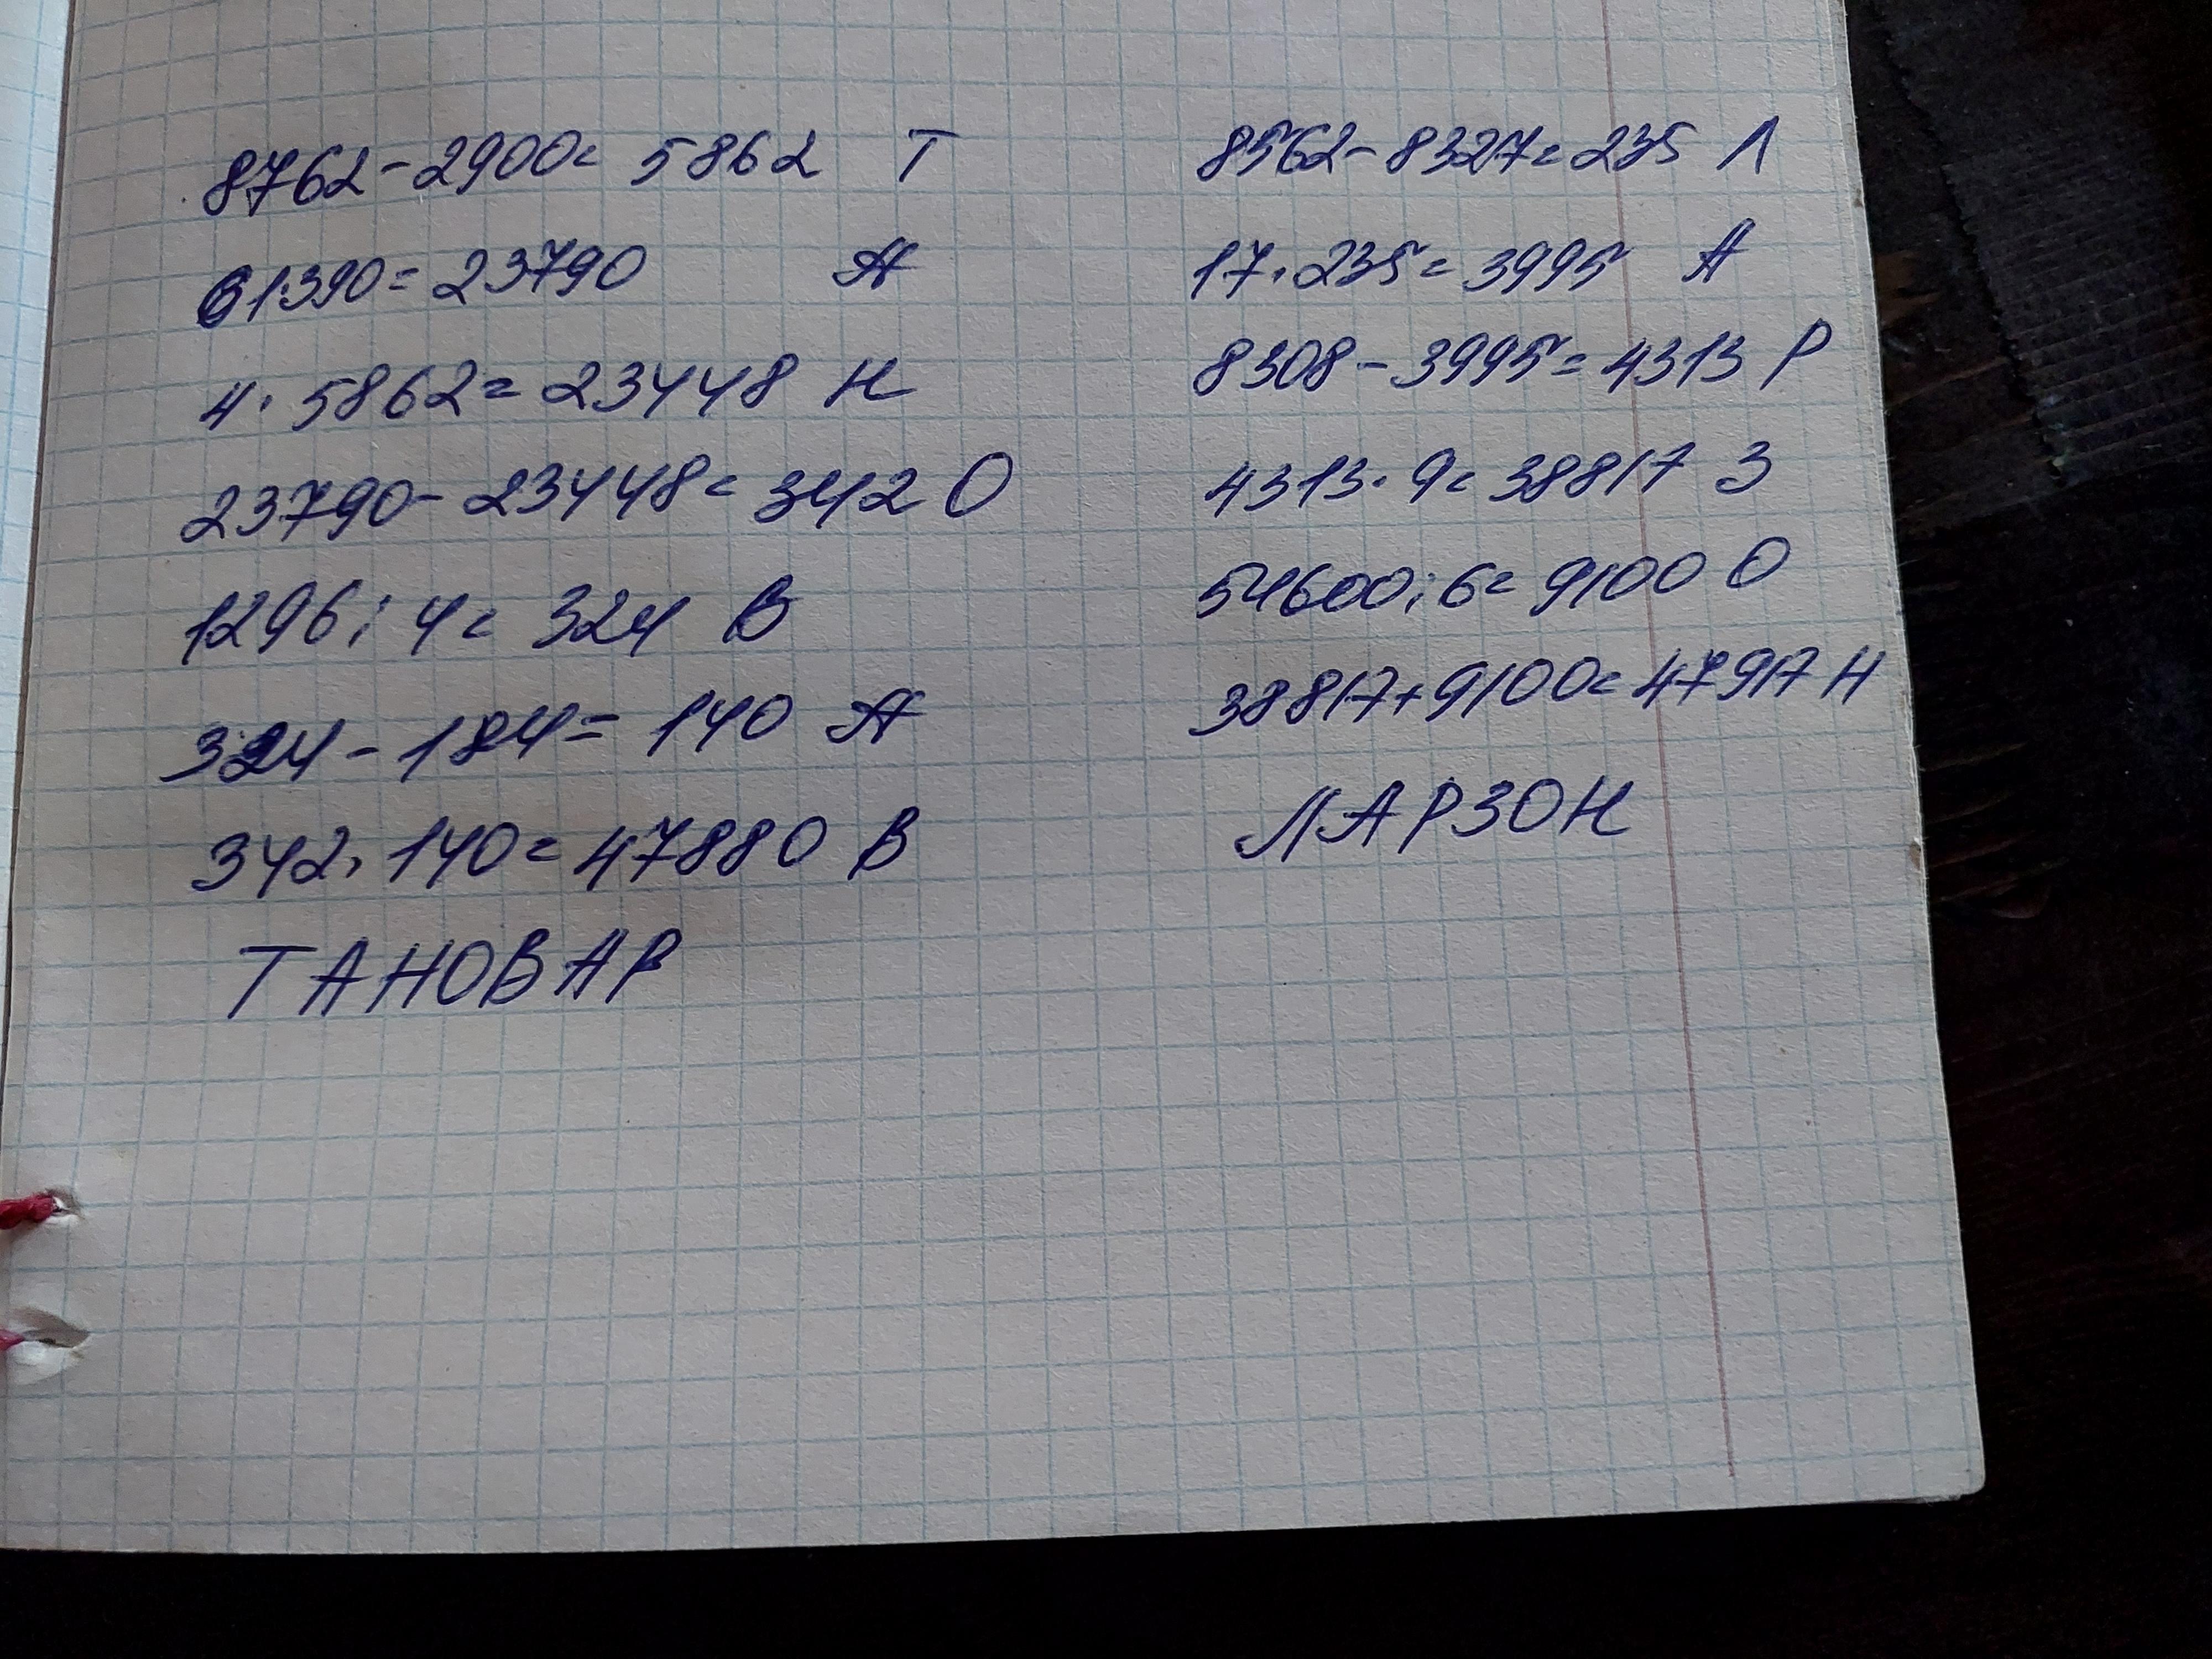 8762-2900= 5862 Т
61·390= 23790 А
4·5862= 23448 Н
23790-23448= 342 О
1296:4= 324 В
324-184= 140 А
342·140= 47880 В
ТАНОВАР
8562-8327=235 Л
17·235= 3995 А
8308-3995= 4313 Р
4313·9= 38817 З
54600:6= 9100 О
38817+9100= 47917 Н
ЛАРЗОН